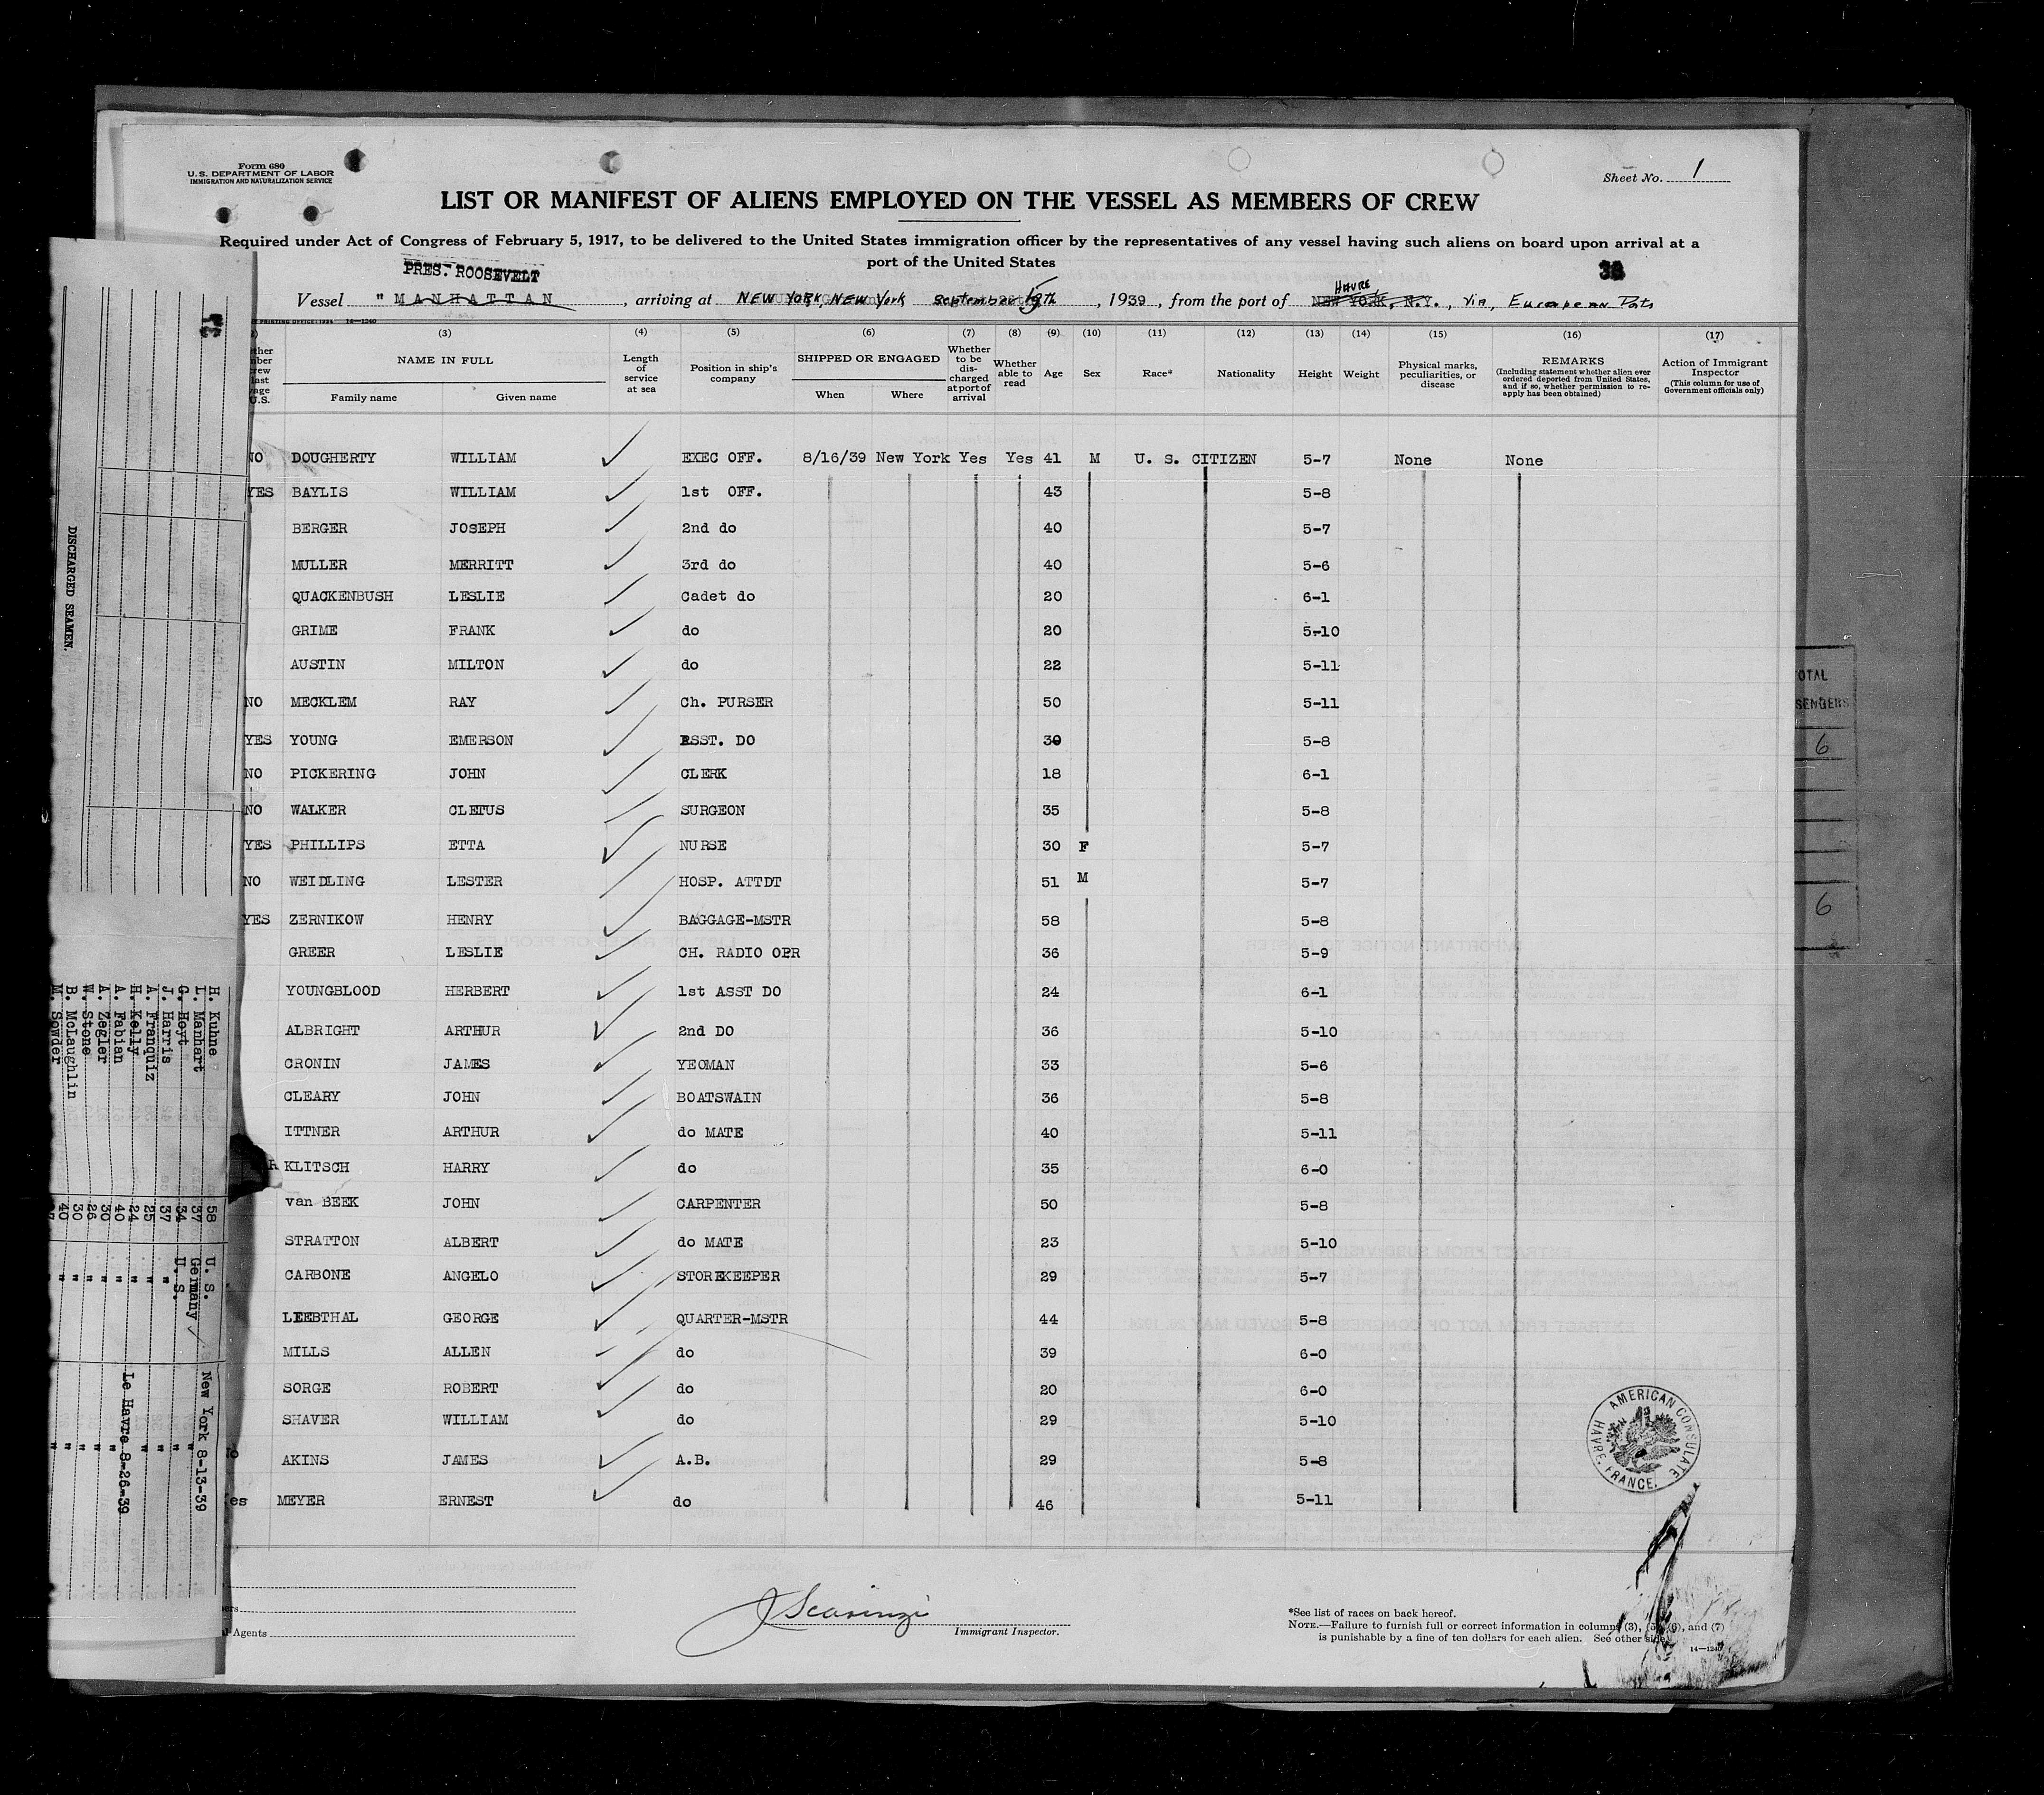 Form 680
U. S. DEPARTMENT OF LABOR
IMMIGRATION AND NATURALIZATION SERVICE
Sheet No. 1
LIST OR MANIFEST OF ALIENS EMPLOYED ON THE VESSEL AS MEMBERS OF CREW
Required under Act of Congress of February 5, 1917, to be delivered to the United States immigration officer by the representatives of any vessel having such aliens on board upon arrival at a
port of the United States
PRES. ROOSEVELT
38
Vessel " MANHATTAN , arriving at NEW YORK, NEW York September 15th , 1939 , from the port of HAVRE NEW YORK, N.Y. , via, European Ports
(3) (4) (5) (6) (7) (8) (9) (10) (11) (12) (13) (14) (15) (16) (17)
NAME IN FULL
Family name Given name
Length of service at sea
Position in ship's company
SHIPPED OR ENGAGED
When Where
Whether to be discharged at port of arrival
Whether able to read
Age
Sex
Race*
Nationality
Height
Weight
Physical marks, peculiarities, or disease
REMARKS
(Including statement whether alien ever ordered deported from United States, and if so, whether permission to reapply has been obtained)
Action of Immigrant Inspector
(This column for use of Government officials only)
NO DOUGHERTY WILLIAM EXEC OFF. 8/16/39 New York Yes Yes 41 M U. S. CITIZEN 5-7 None None
YES BAYLIS WILLIAM 1st OFF. 43 5-8
BERGER JOSEPH 2nd do 40 5-7
MULLER MERRITT 3rd do 40 5-6
QUACKENBUSH LESLIE Cadet do 20 6-1
GRIME FRANK do 20 5-10
AUSTIN MILTON do 22 5-11
NO MECKLEM RAY Ch. PURSER 50 5-11
YES YOUNG EMERSON ASST. DO 30 5-8
NO PICKERING JOHN CLERK 18 6-1
NO WALKER CLETUS SURGEON 35 5-8
YES PHILLIPS ETTA NURSE 30 F 5-7
NO WEIDLING LESTER HOSP. ATTDT 51 M 5-7
YES ZERNIKOW HENRY BAGGAGE-MSTR 58 5-8
GREER LESLIE CH. RADIO OPR 36 5-9
YOUNGBLOOD HERBERT 1st ASST DO 24 6-1
ALBRIGHT ARTHUR 2nd DO 36 5-10
CRONIN JAMES YEOMAN 33 5-6
CLEARY JOHN BOATSWAIN 36 5-8
ITTNER ARTHUR do MATE 40 5-11
KLITSCH HARRY do 35 6-0
van BEEK JOHN CARPENTER 50 5-8
STRATTON ALBERT do MATE 23 5-10
CARBONE ANGELO STOREKEEPER 29 5-7
LEEBTHAL GEORGE QUARTER-MSTR 44 5-8
MILLS ALLEN do 39 6-0
SORGE ROBERT do 20 6-0
SHAVER WILLIAM do 29 5-10
AKINS JAMES A.B. 29 5-8
MEYER ERNEST do 46 5-11
AMERICAN CONSULATE
HAVRE, FRANCE.
J Scavinzi
Immigrant Inspector.
Agents
*See list of races on back hereof.
NOTE.—Failure to furnish full or correct information in columns (3), (5), (6), and (7)
is punishable by a fine of ten dollars for each alien. See other side.
14—1240
DISCHARGED SEAMEN.
H. Kuhne 58 U. S. New York 8-13-39
L. Manhart 37 Germany "
G. Hoyt 34 U. S. "
J. Harris 37 " "
A. Franquiz 25 "
H. Kelly 24 "
A. Fabian 40 " Le Havre 8-26-39
A. Zegler 30 " "
W. Stone 26 " "
B. McLaughlin 30 " "
M. Sowder 40 " "
TOTAL
PASSENGERS
6
6